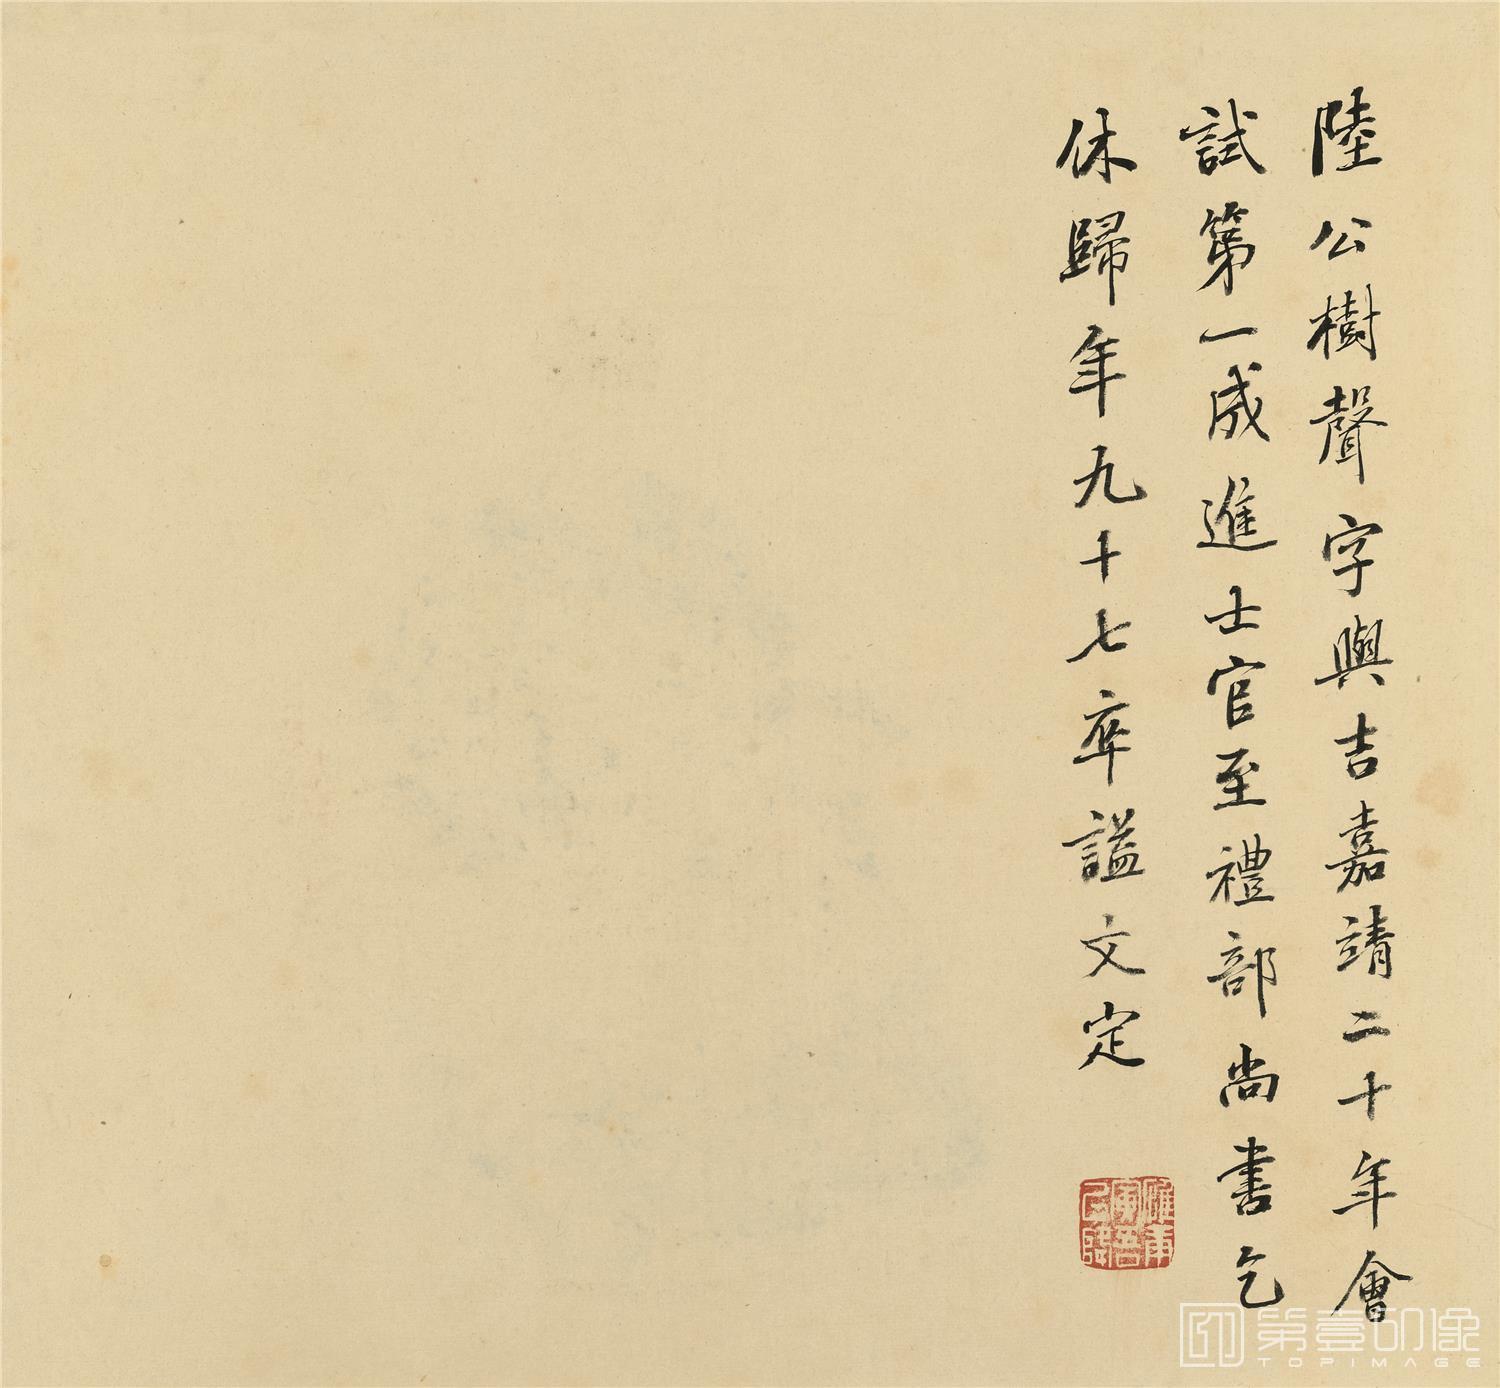 陸公樹聲字與吉嘉靖二十年會
試第一成進士官至禮部尚書乞
休歸年九十七卒謚文定
第壹印像
TOPIMAGE